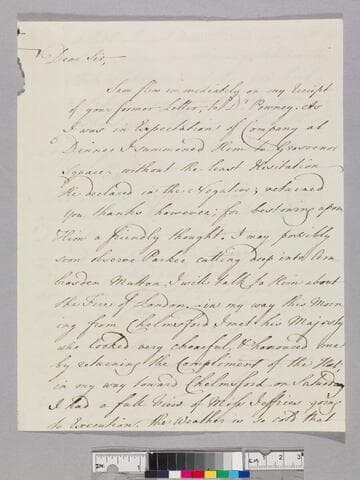 Dear Sir,
I am flew immediately on my receipt
of your former Letter, to Dr. Powney. As
I was in Expectation of Company at
Dinner I summoned Him to Grosvenor
Square, without the least Hesitation
He declared in the Negative; returned
you thanks however for bestowing upon
Him a friendly thought. I may possibly
soon observe Parker cutting deep into
Mutton. I will talk to Him about
the Fire of London. in my way this Morn
ing from Chelmsford I met his Majesty
who looked very chearful & honoured me
by returning the Compliment of the Hat,
in my way toward Chelmsford on Saturday
I had a full View of Miss Jefferies going
to Execution. the Weather is so cold that